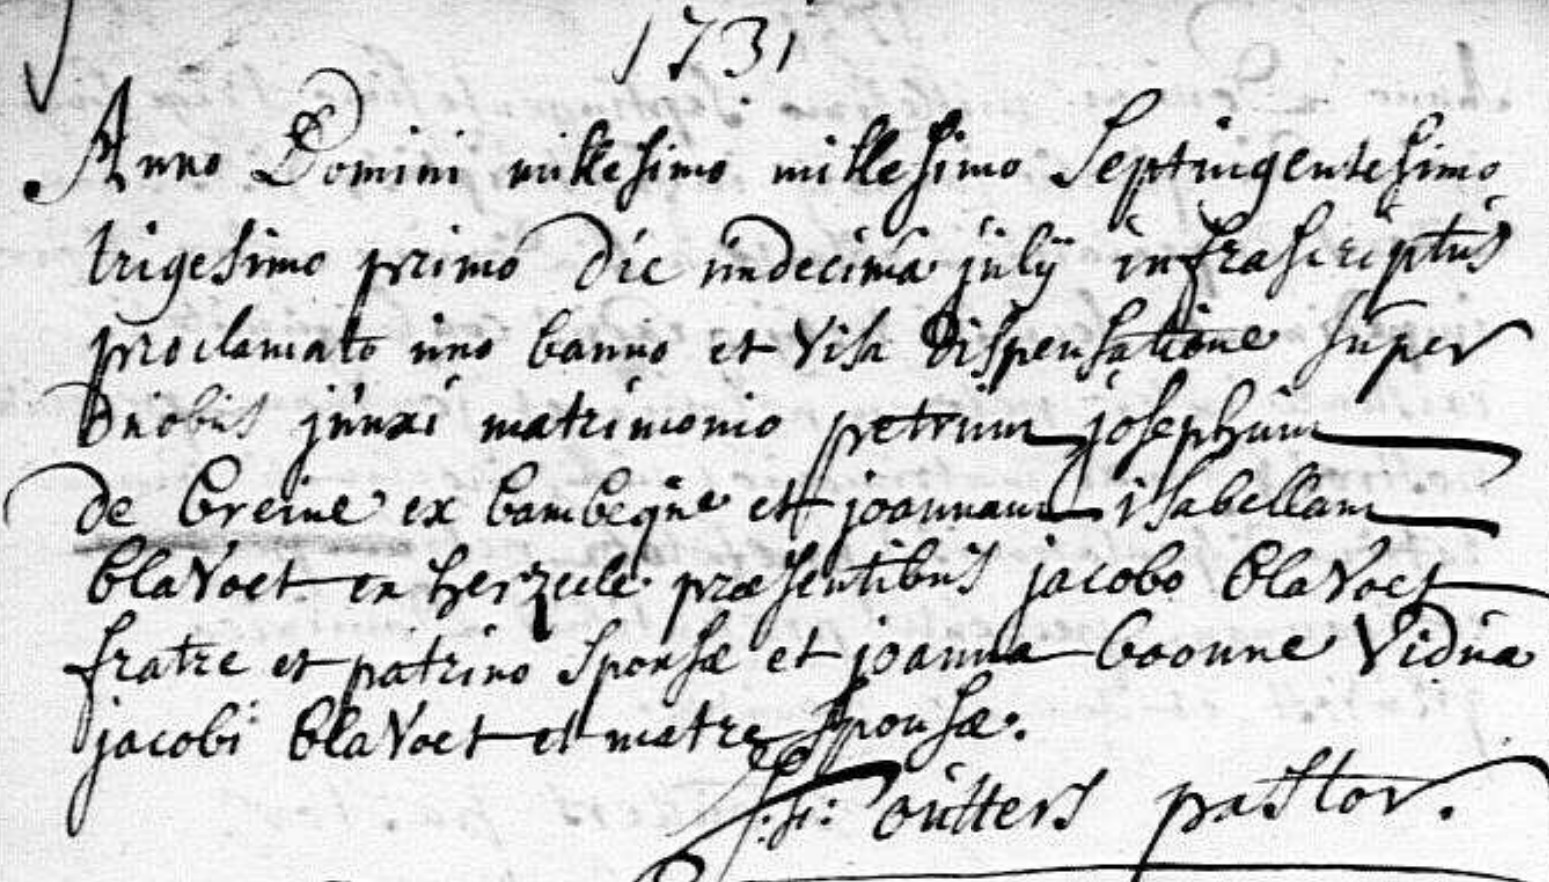 1731
Anno Domini millesimo millesimo Septingentesimo
trigesimo primo die undecima julij infrascriptus
proclamato uno banno et visa dispensatione super
duobus junxi matrimonio petrum josephum
de breine ex bambeque et joannam isabellam
blavoet ex herzeele præsentibus jacobo blavoet
fratre et patrino sponsæ et joanna boonne vidua
jacobi blavoet et matre sponsæ.
outters pastor.